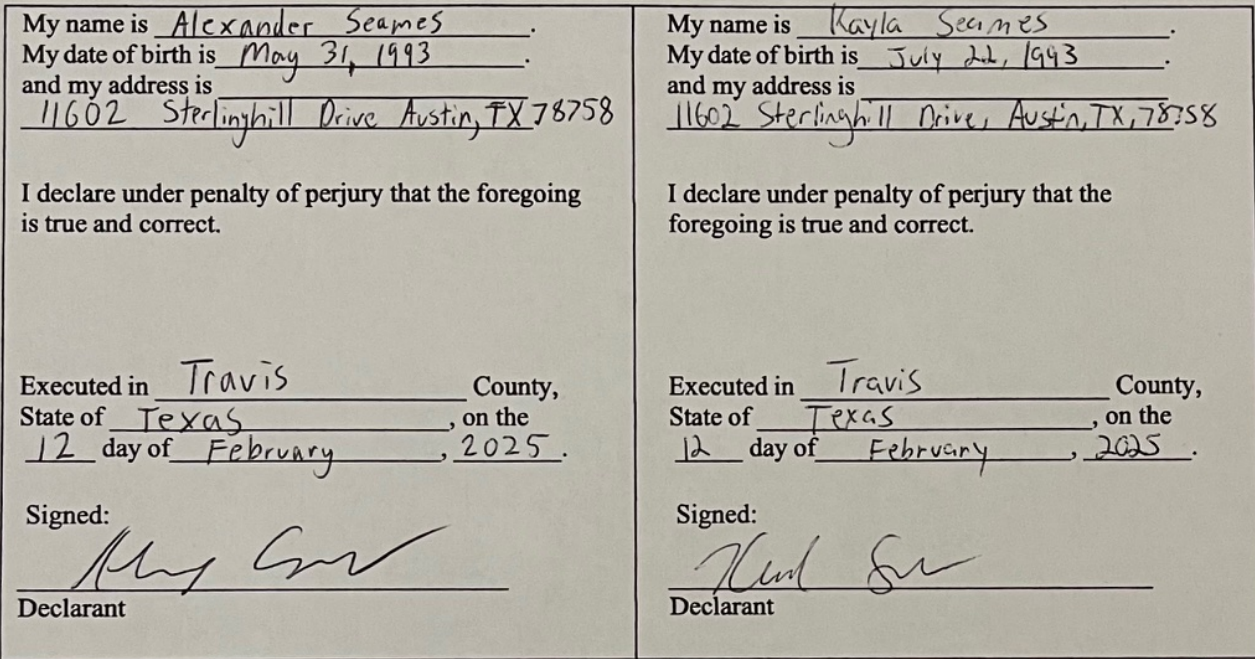 My name is Alexander Seames.
My date of birth is May 31, 1993.
and my address is
11602 Sterlinghill Drive Austin, TX 78758
I declare under penalty of perjury that the foregoing
is true and correct.
Executed in Travis County,
State of Texas, on the
12 day of February, 2025.
Signed:
Declarant
My name is Kayla Seames.
My date of birth is July 22, 1993.
and my address is
11602 Sterlinghill Drive, Austin, TX, 78758
I declare under penalty of perjury that the
foregoing is true and correct.
Executed in Travis County,
State of Texas, on the
12 day of February, 2025.
Signed:
Declarant